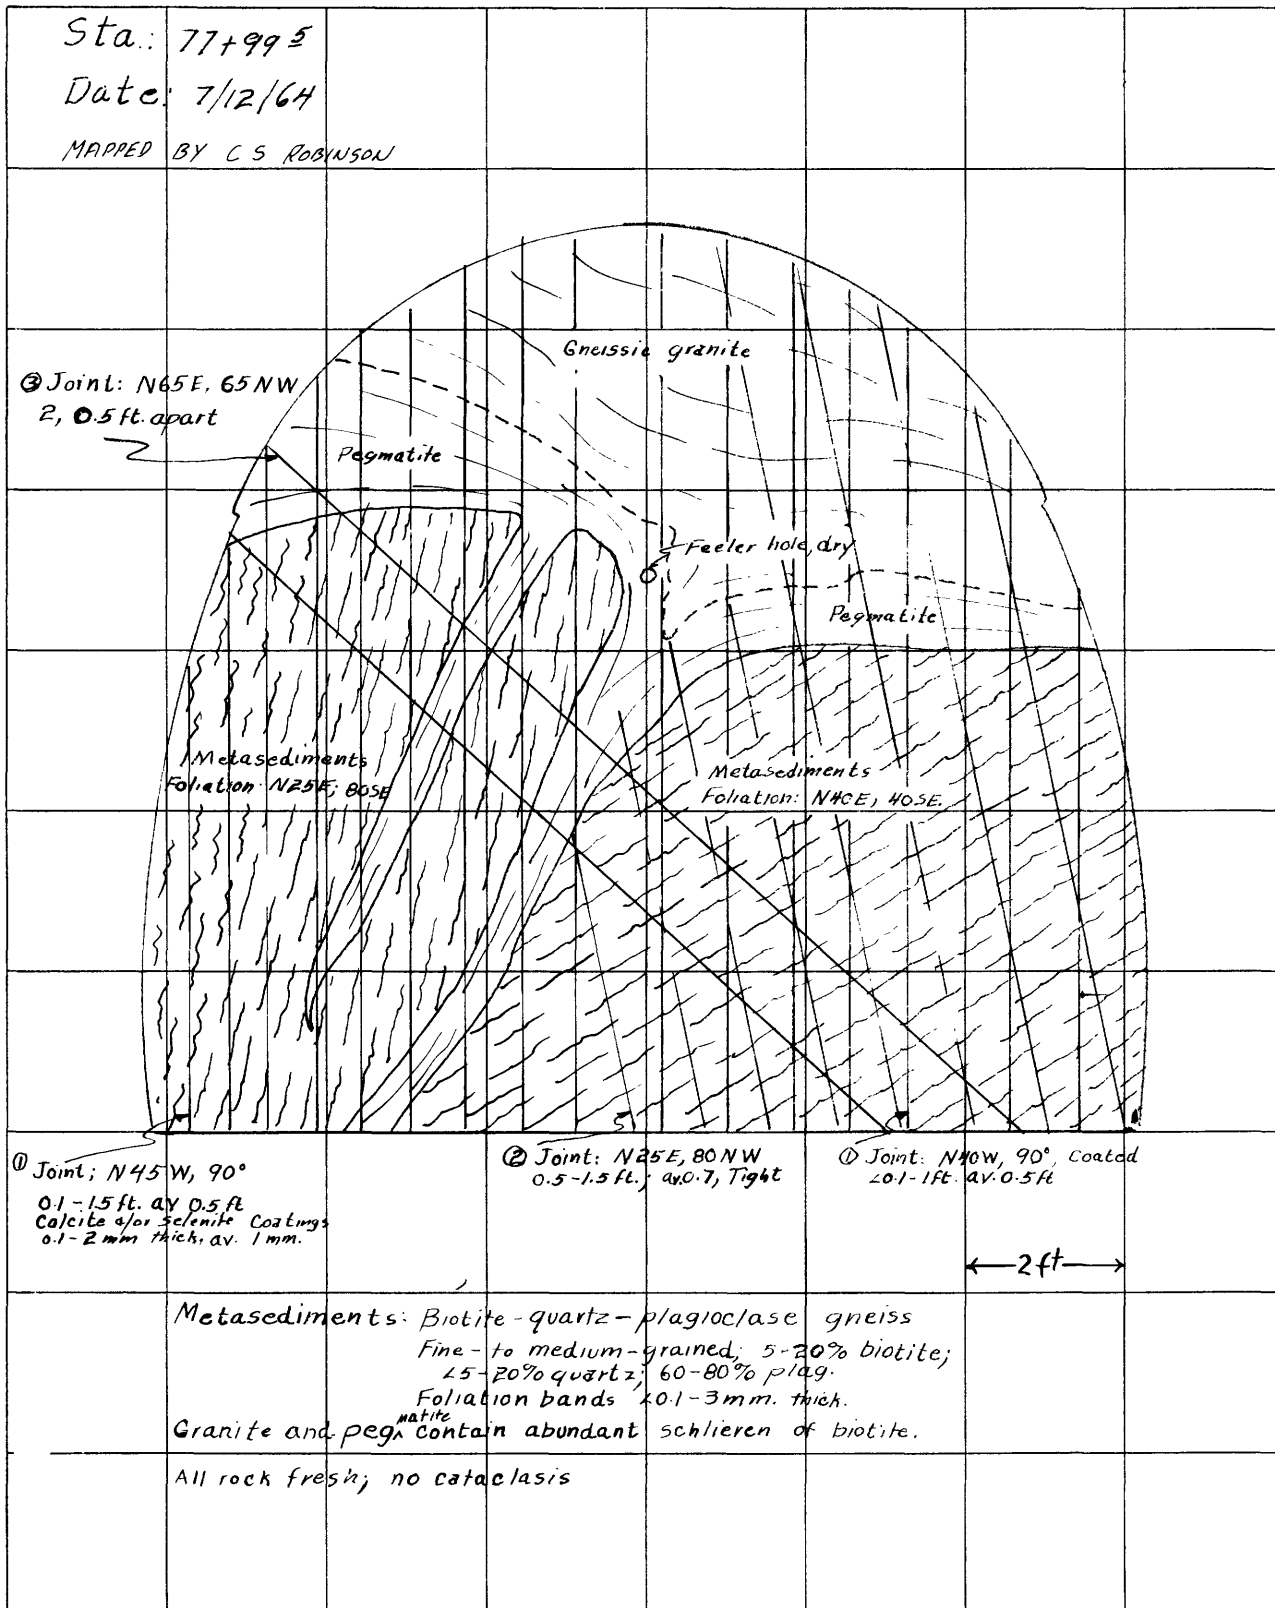 Sta.: 77+99 5
Date: 7/12/64
MAPPED BY C S ROBINSON
Gneissic granite
③ Joint: N65E, 65NW
2, 0.5 ft. apart
Pegmatite
Feeler hole, dry
Pegmatite
Metasediments
Foliation: N25E; 80SE
Metasediments
Foliation: N40E, 40SE.
① Joint; N45W, 90°
0.1-1.5 ft. av 0.5 ft
Calcite a/or selenite Coatings
0.1-2 mm thick, av. 1 mm.
② Joint: N25E, 80NW
0.5-1.5 ft.; av. 0.7, Tight
① Joint: N40W, 90°, Coated
<0.1-1ft. av. 0.5ft
2 ft
Metasediments: Biotite-quartz-plagioclase gneiss
Fine- to medium-grained; 5-20% biotite;
<5-20% quartz; 60-80% plag.
Foliation bands <0.1-3mm. thick.
Granite and pegmatite contain abundant schlieren of biotite.
All rock fresh; no cataclasis